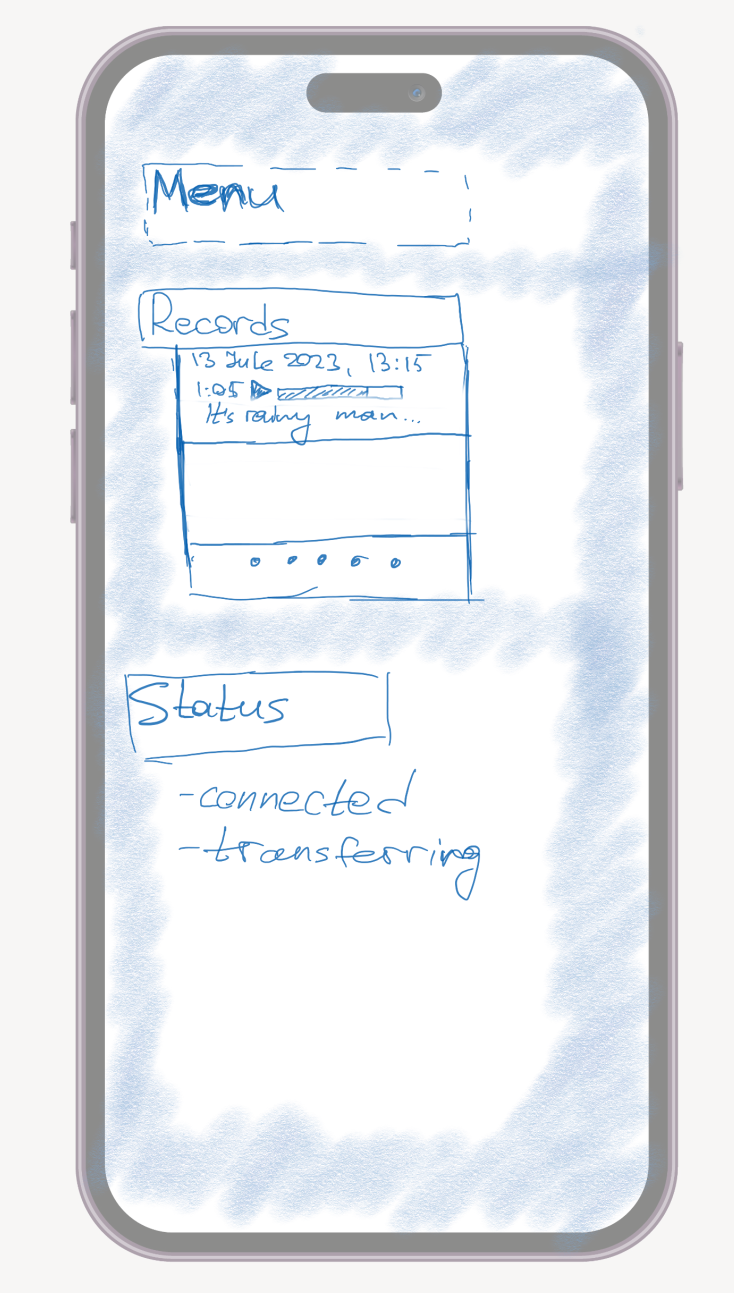 Menu
Records
13 Jule 2023, 13:15
1:05
It's rainy man...
Status
-connected
-transferring